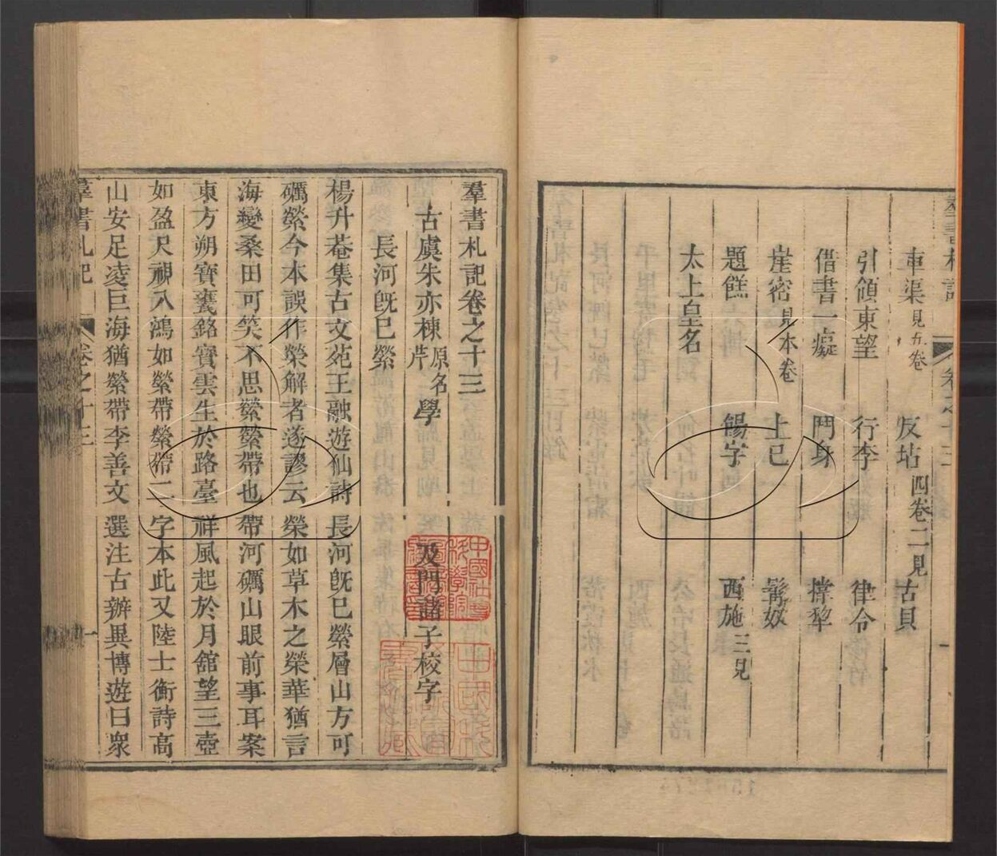 羣書札記
車渠見五卷　反坫四卷二見　古貝
引領東望　行李　律令
借書一癡　鬥身　撐犂
崖密見本卷　上巳　髯奴
題餻　餳字　西施三見
太上皇名
羣書札記卷之十三
古虞朱亦棟原名芹學　及門諸子校字
長河旣已縈
楊升菴集古文苑王融遊仙詩長河旣已縈層山方可
礪縈今本誤作榮解者遂謬云榮如草木之榮華猶言
海變桑田可笑不思縈縈帶也帶河礪山眼前事耳案
東方朔寶甕銘寶雲生於路臺祥風起於月舘望三壺
如盈尺視八鴻如縈帶縈帶二字本此又陸士衡詩高
山安足凌巨海猶縈帶李善文選注古辨異博遊曰衆
羣書札記　卷之十三　一